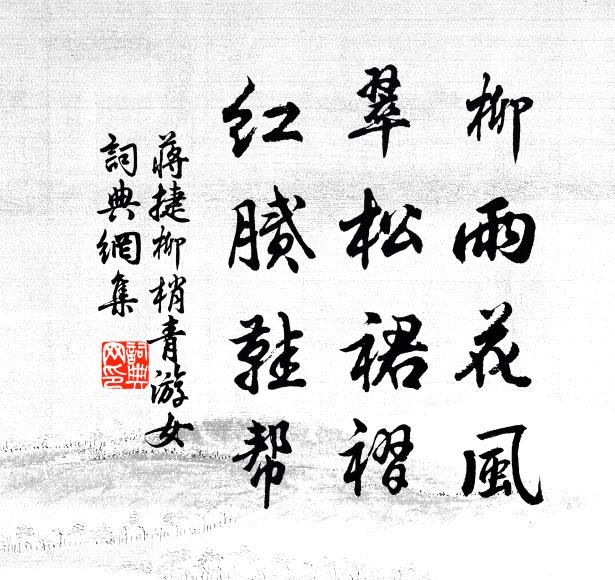 柳雨花風
翠松裙褶
紅膩鞋帮
蔣捷柳梢青游女
詞典網集
詞典
网印